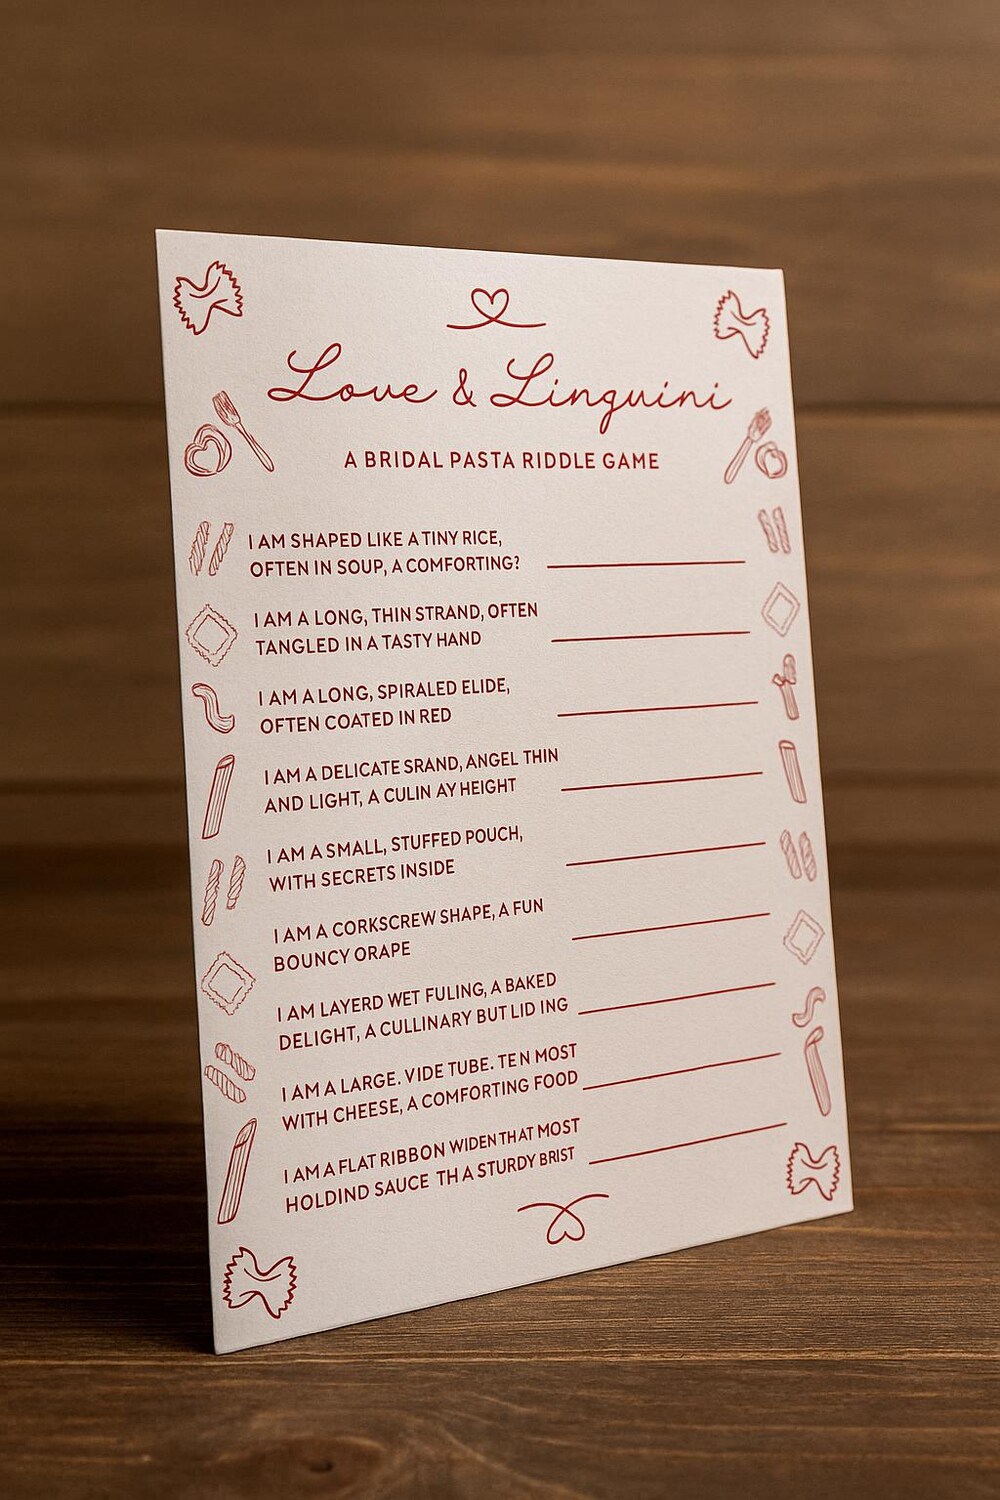 Love & Linguini
A BRIDAL PASTA RIDDLE GAME
I AM SHAPED LIKE A TINY RICE,
OFTEN IN SOUP, A COMFORTING?
I AM A LONG, THIN STRAND, OFTEN
TANGLED IN A TASTY HAND
I AM A LONG, SPIRALED ELIDE,
OFTEN COATED IN RED
I AM A DELICATE SRAND, ANGEL THIN
AND LIGHT, A CULIN AY HEIGHT
I AM A SMALL, STUFFED POUCH,
WITH SECRETS INSIDE
I AM A CORKSCREW SHAPE, A FUN
BOUNCY ORAPE
I AM LAYERD WET FULING, A BAKED
DELIGHT, A CULLINARY BUT LID ING
I AM A LARGE. VIDE TUBE. TEN MOST
WITH CHEESE, A COMFORTING FOOD
I AM A FLAT RIBBON WIDEN THAT MOST
HOLDIND SAUCE TH A STURDY BRIST